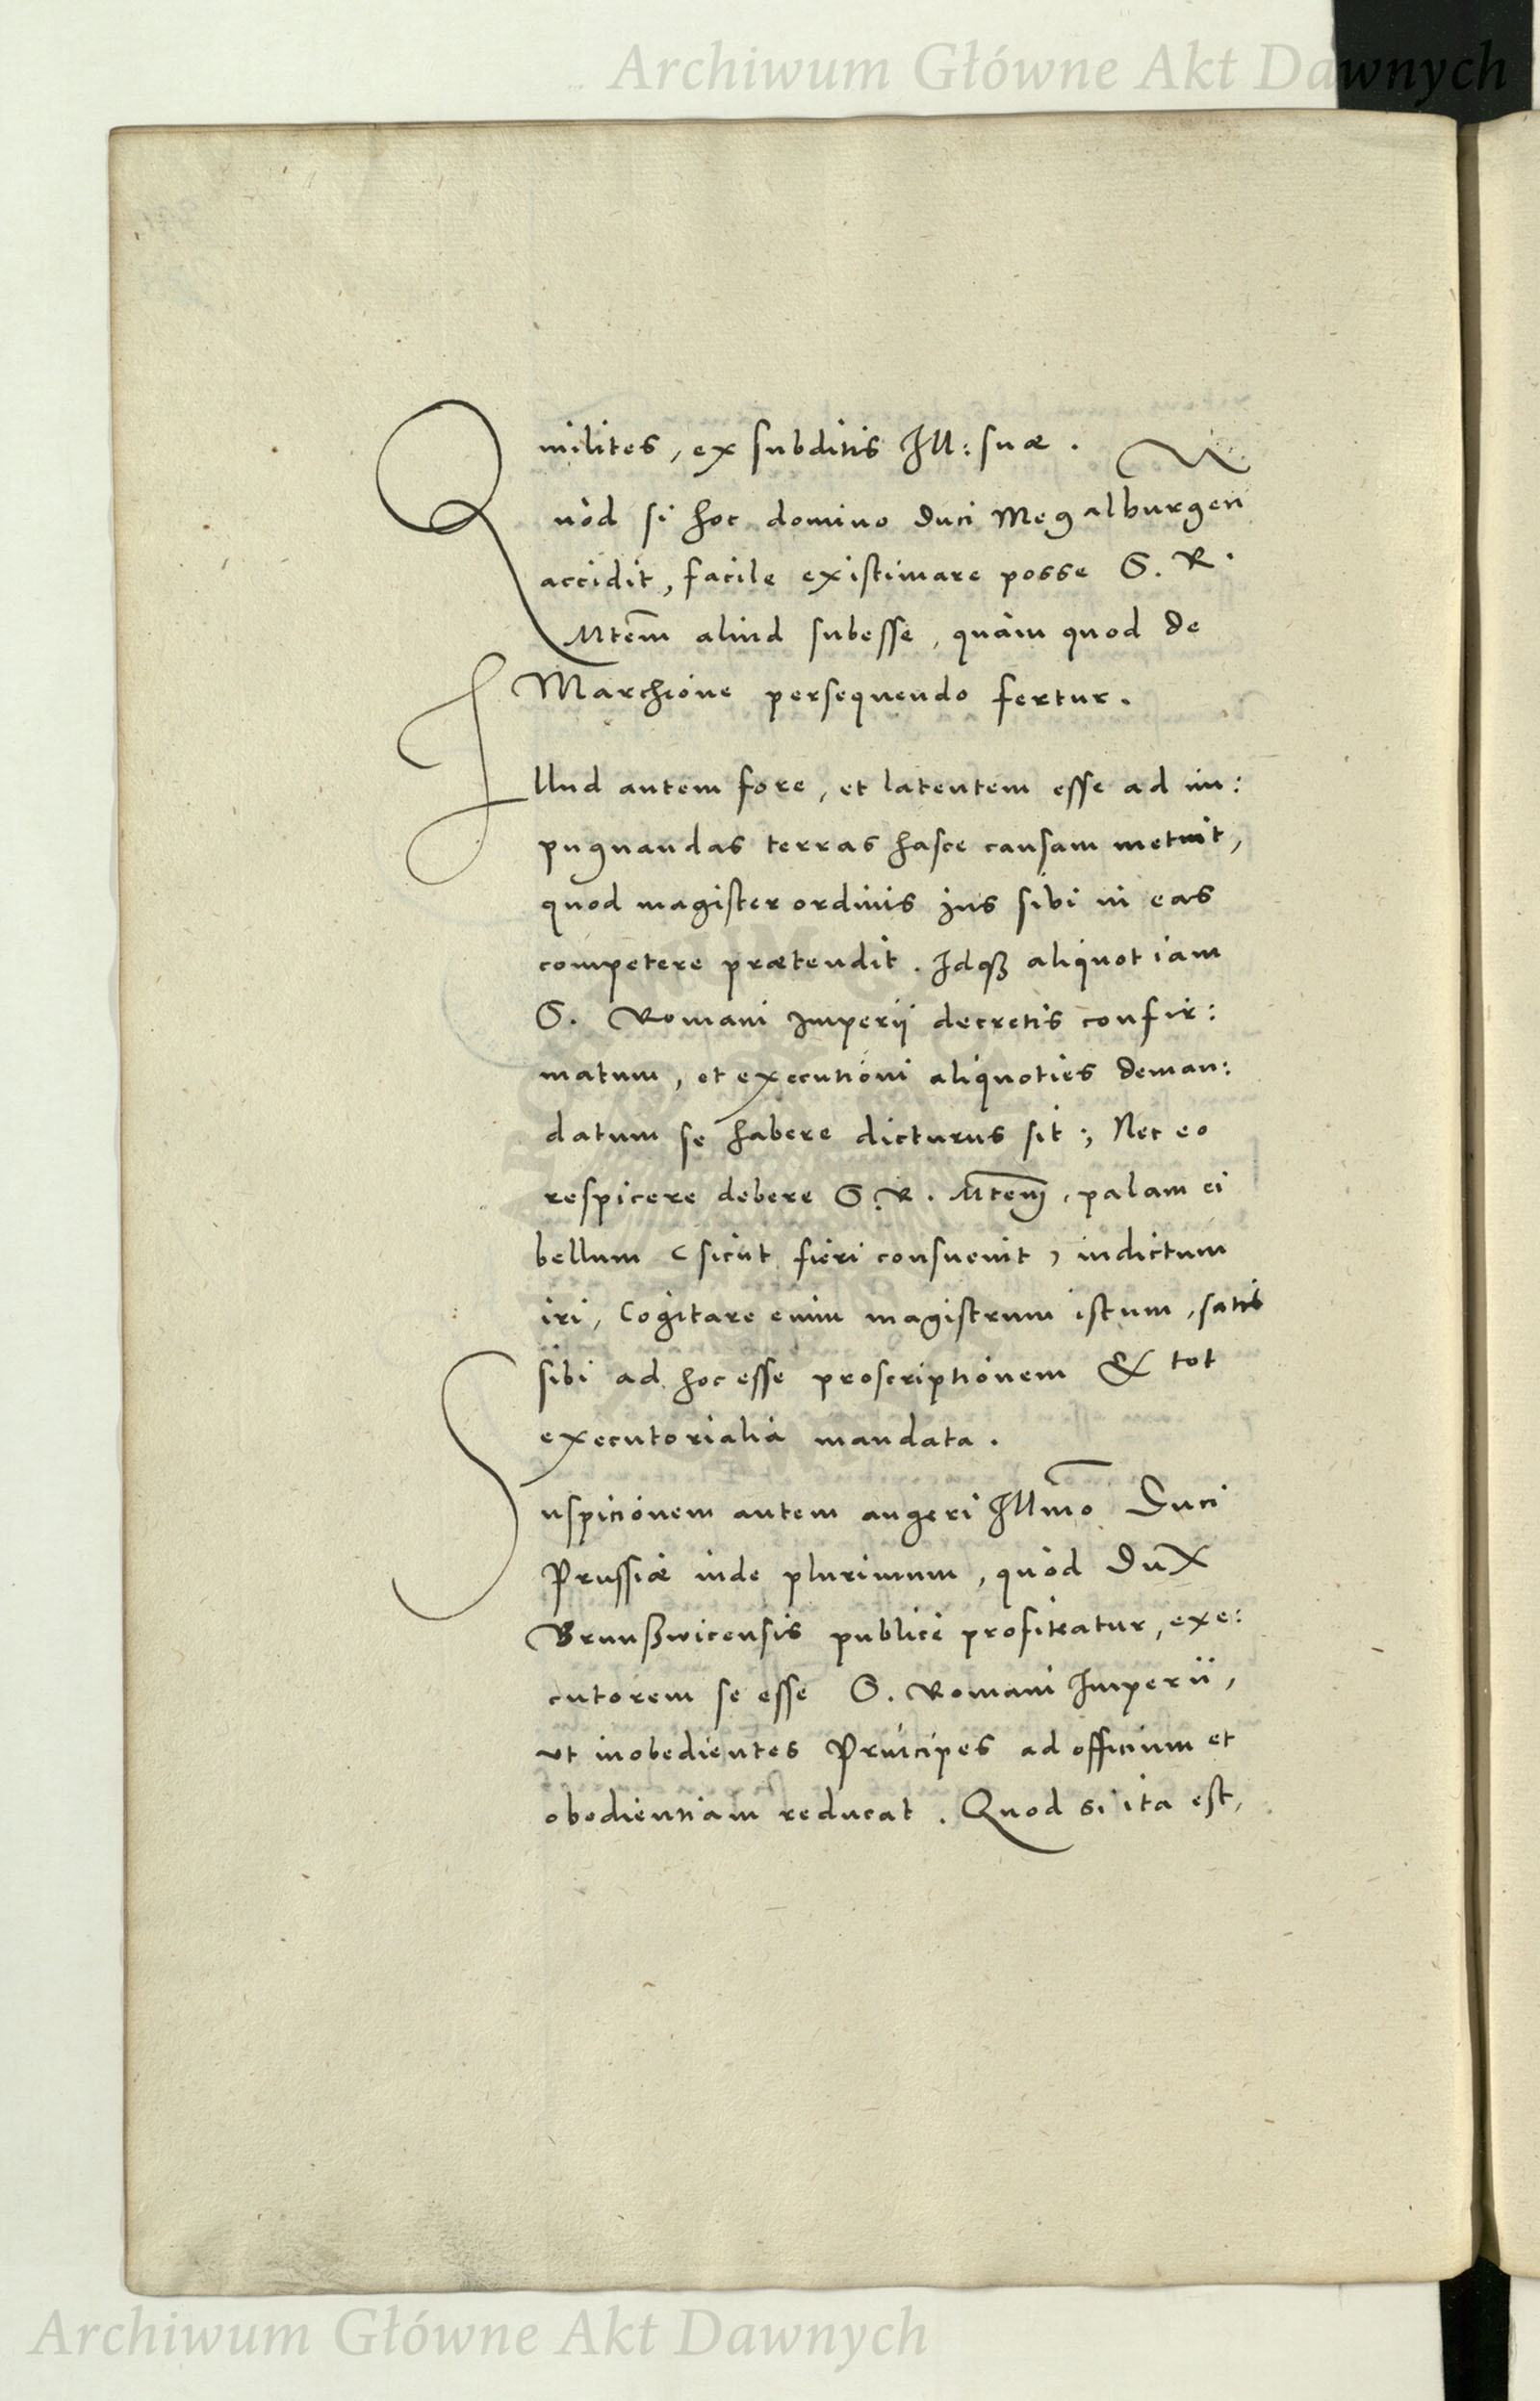 Archiwum Główne Akt Dawnych
milites, ex subditis Ill: suæ.
Quòd si hoc domino Duci Megalburgen̄
accidit, facile existimare posse S. R.
Mtem̄ aliud subesse, quàm quod de
Marchione persequendo fertur.
Illud autem fore, et latentem esse ad im:
pugnandas terras hasce causam metuit,
quod magister ordinis jus sibi in eas
competere prætendit. Idqꝫ aliquot iam
S. Romani Imperij decretis confir:
matum, et executioni aliquoties deman:
datum se habere dicturus sit; Nec eo
respicere debere S. R. Mtem̄, palam ei
bellum (sicut fieri consuevit) indictum
iri, Cogitare enim magistrum istum, satis
sibi ad hoc esse proscriptionem & tot
executorialia mandata.
Suspicionem autem augeri Illmō Duci
Prussiæ inde plurimum, quòd Dux
Brunßwicensis publicè profiteatur, exe:
cutorem se esse S. Romani Imperii,
vt inobedientes Principes ad officium et
obedientiam reducat. Quod si ita est,
Archiwum Główne Akt Dawnych